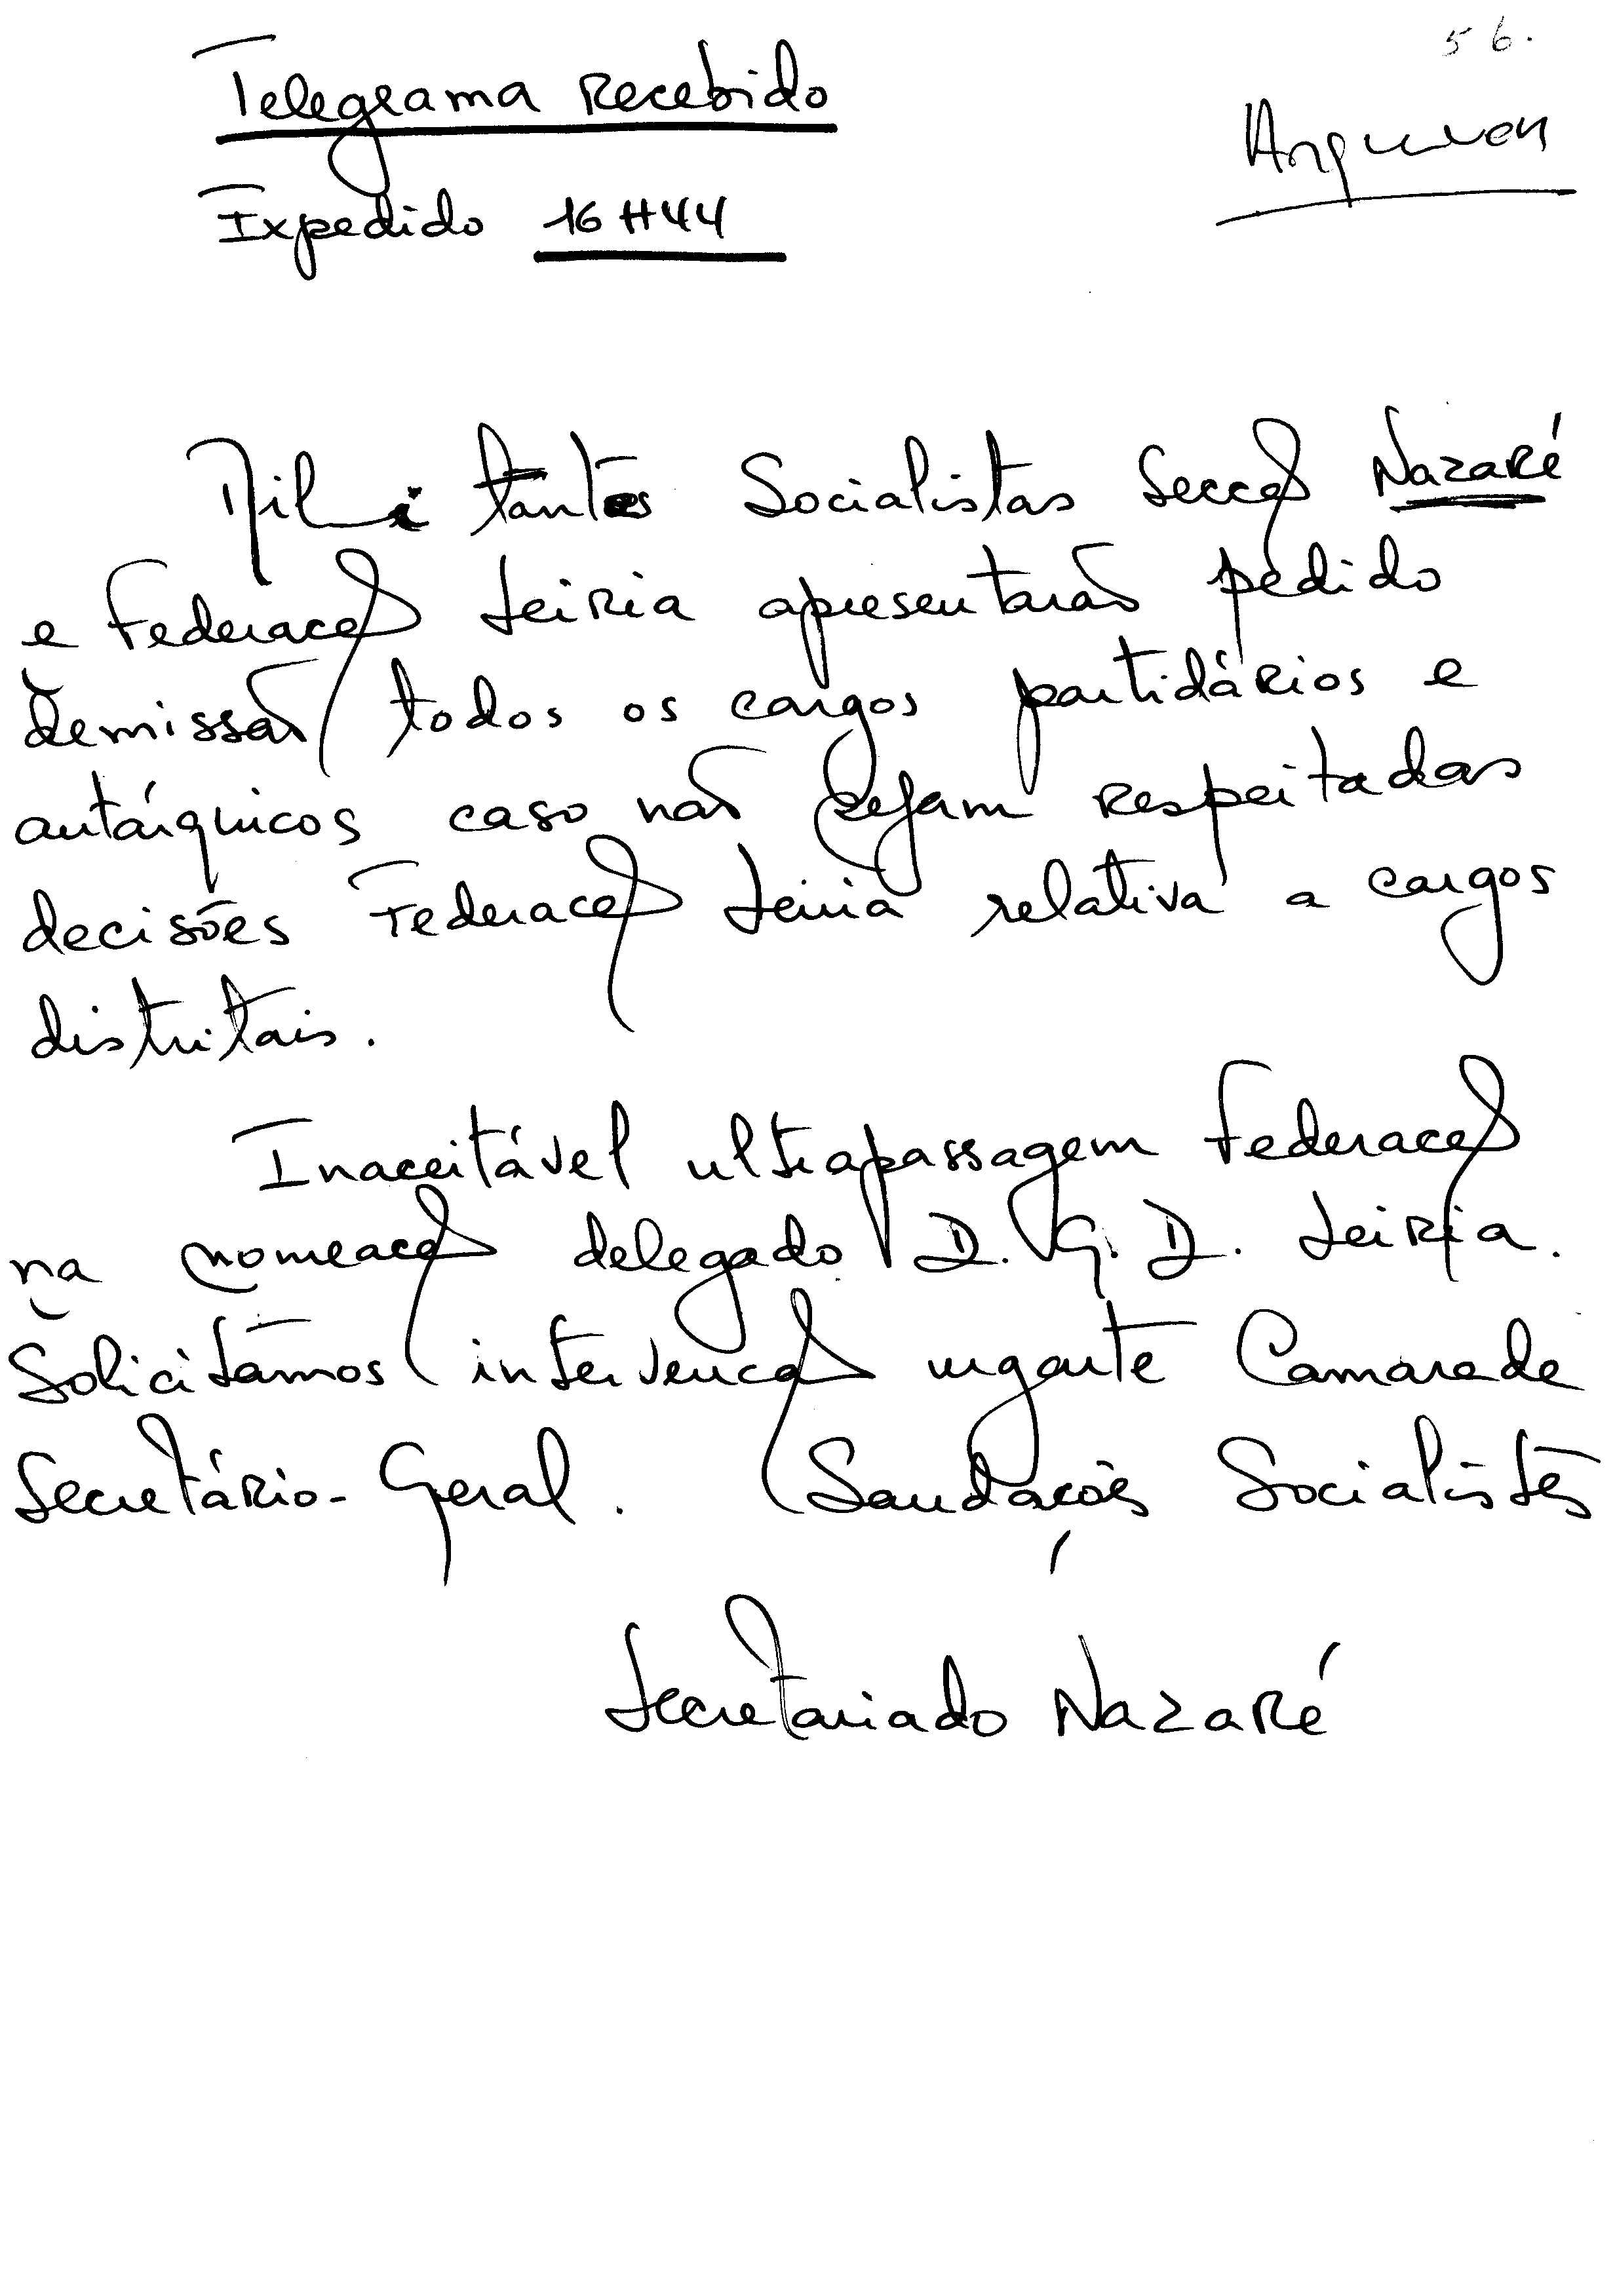 56.
Telegrama Recebido
Arquivar
Expedido 16H44
Militantes Socialistas Secção Nazaré
e Federação Leiria apresentarão pedido
demissão todos os cargos partidários e
autárquicos caso não sejam respeitadas
decisões Federação Leiria relativa a cargos
distritais.
Inaceitável ultrapassagem Federação
na nomeação delegado D.G.D. Leiria.
Solicitamos intervenção urgente Camarada
Secretário-Geral. Saudações Socialistas
Secretariado Nazaré